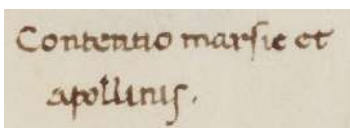 Contentio marsie et
apollinis.